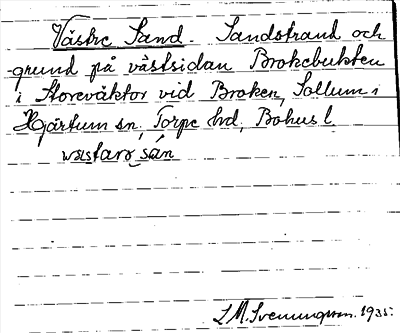 Västre Sand. Sandstrand och
grund på västsidan Brokebukten
i Storeväktor vid Broken, Sollum i
Hjärtum sn, Torpe hd, Bohus l
wästarə sán
S.M. Svenungsson. 1935.